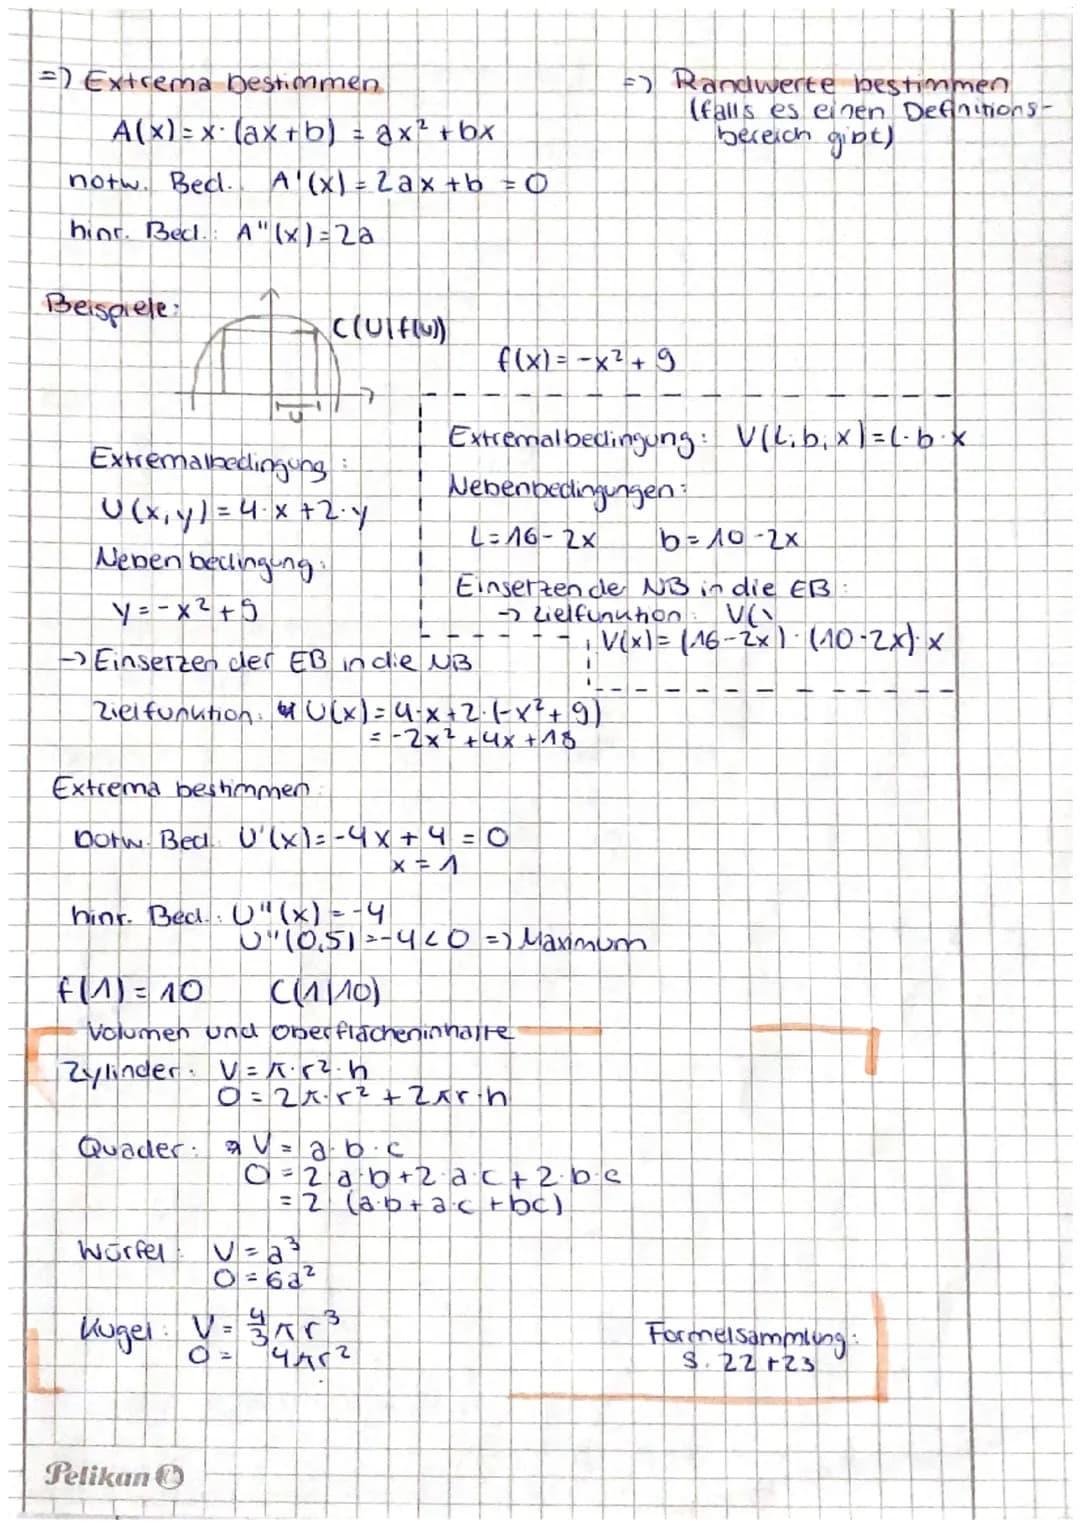 => Extrema bestimmen
A(x) = x· (ax+b) = ax² + bx
notw. Bed. A'(x) = 2ax + b = 0
hinr. Bed.: A''(x) = 2a
=> Randwerte bestimmen
(falls es einen Definitions-
bereich gibt)
Beispiele:
C(U|f(u))
f(x) = -x² + 9
U
Extremalbedingung:
U(x,y) = 4·x + 2·y
Nebenbedingung:
y = -x² + 9
-> Einsetzen der EB in die NB
Extremalbedingung: V(L,b,x) = L·b·x
Nebenbedingungen:
L = 16-2x b = 10-2x
Einsetzen der NB in die EB:
-> Zielfunktion: V(
V(x) = (16-2x)·(10-2x)·x
Zielfunktion: U(x) = 4·x+2·(-x²+9)
= -2x² + 4x + 18
Extrema bestimmen:
notw. Bed. U'(x) = -4x + 4 = 0
x = 1
hinr. Bed.: U''(x) = -4
U''(0,5) = -4 < 0 => Maximum
f(1) = 10 C(1|10)
Volumen und Oberflächeninhalte
Zylinder: V = π·r²·h
O = 2π·r² + 2πr·h
Quader: V = a·b·c
O = 2·a·b+2·a·c+2·b·c
= 2 (a·b+a·c+bc)
Würfel: V = a³
O = 6a²
Kugel: V = 4/3 πr³
O = 4πr²
Formelsammlung:
S. 22+23
Pelikan